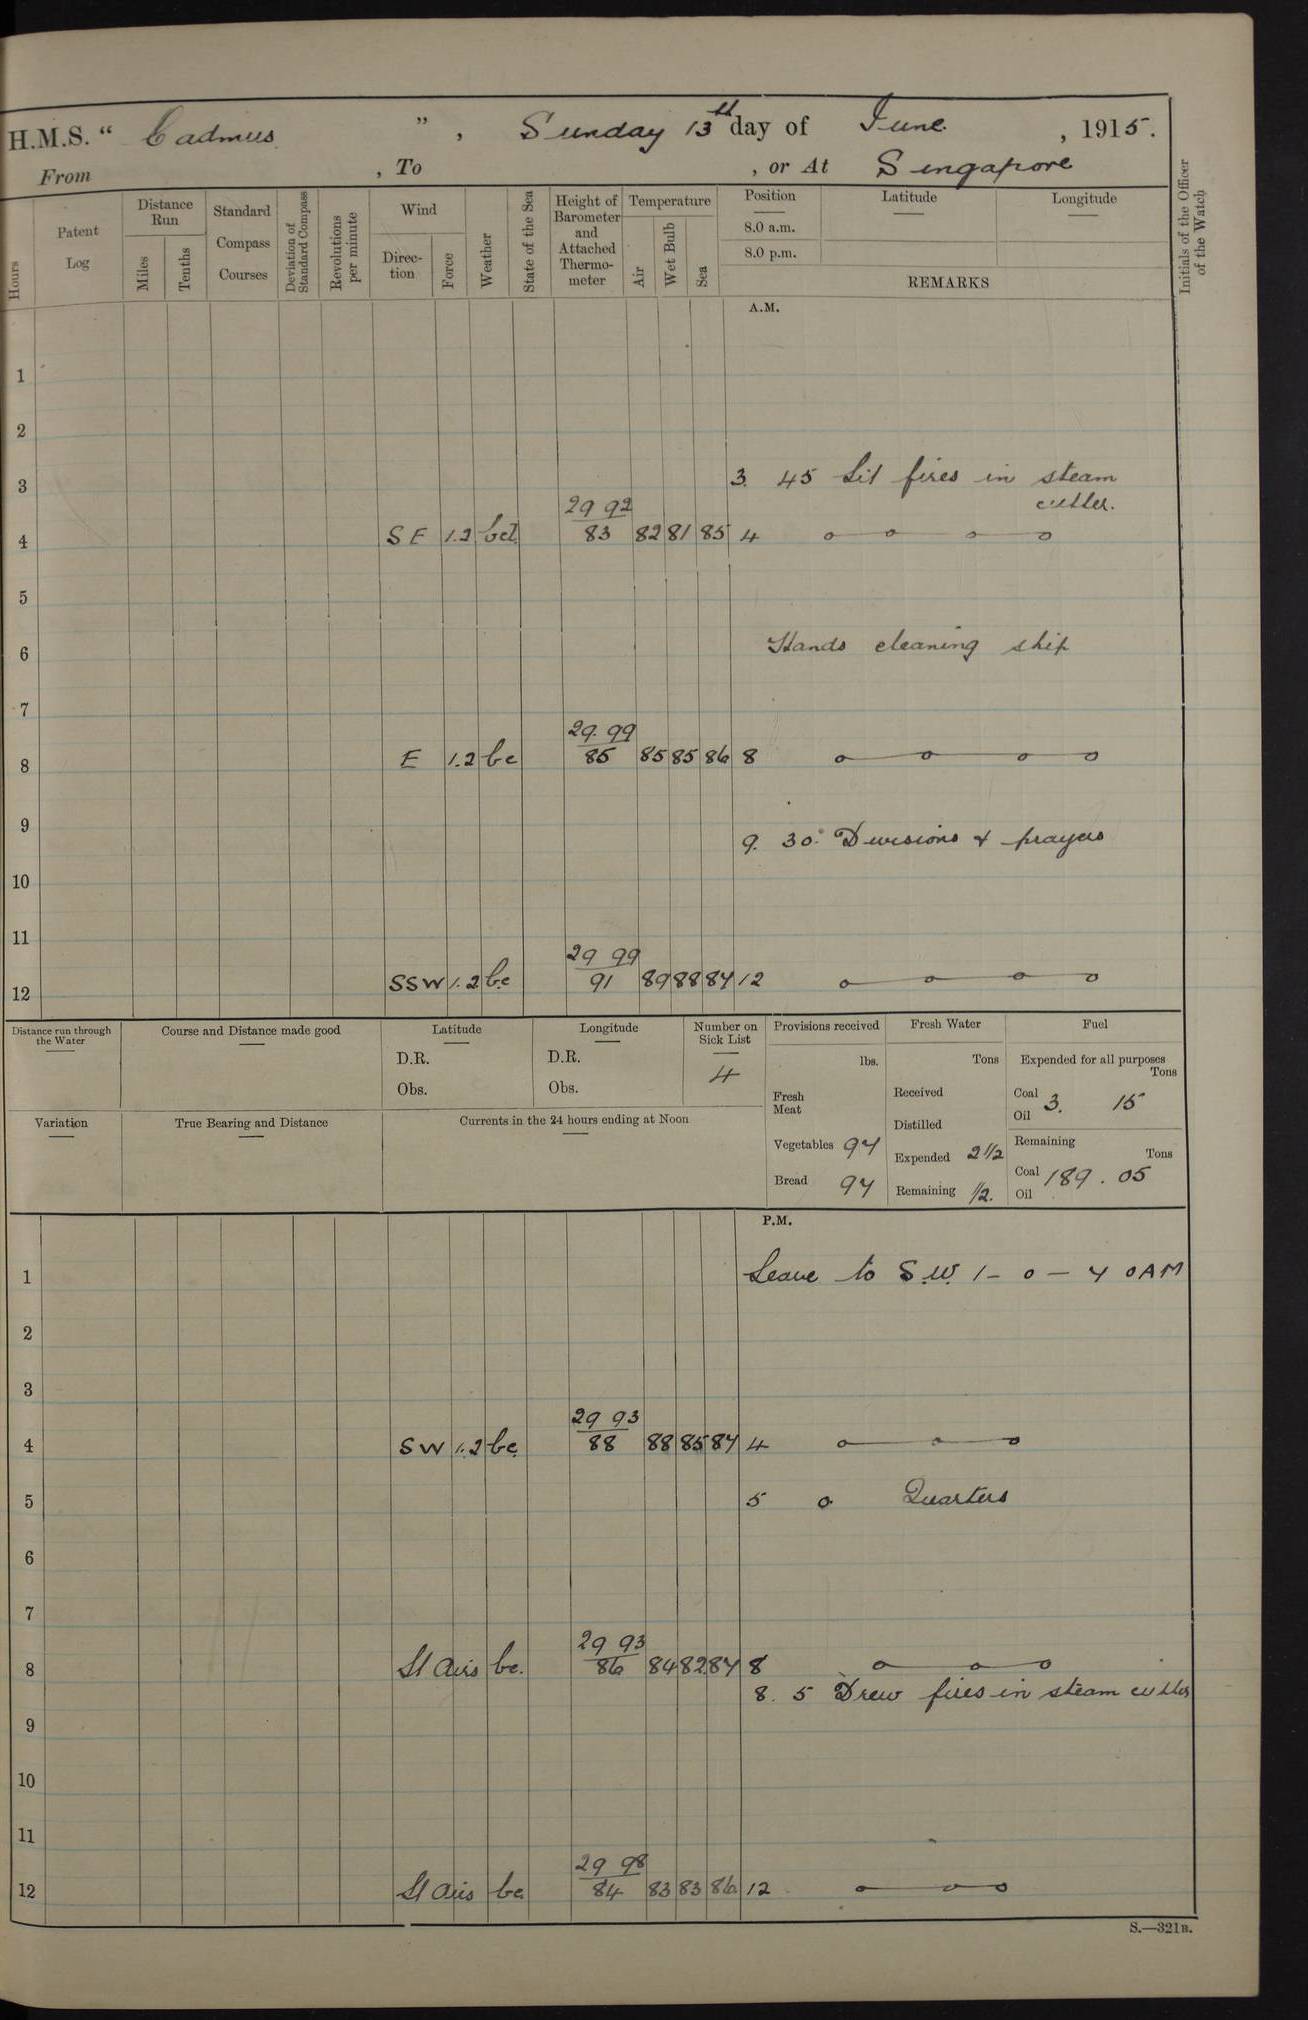 H.M.S. " Cadmus " , Sunday 13th day of June , 1915.
From , To , or At Singapore
Hours
Patent Log
Distance Run
Miles
Tenths
Standard Compass Courses
Deviation of Standard Compass
Revolutions per minute
Wind
Direction
Force
Weather
State of the Sea
Height of Barometer and Attached Thermometer
Temperature
Air
Wet Bulb
Sea
Position
8.0 a.m.
8.0 p.m.
Latitude
Longitude
REMARKS
Initials of the Officer of the Watch
A.M.
1
2
3 3. 45 Lit fires in steam
cutter.
29 92
4 SE 1.2 83 82 81 85 4
5
6 Hands cleaning ship
7
29.99
8 E 1.2 bc 85 85 85 86 8
9 9. 30. Divisions & prayers
10
11
29 99
12 SSW 1.2 bc 91 89 88 87 12
Distance run through the Water
Course and Distance made good
Latitude
D.R.
Obs.
Longitude
D.R.
Obs.
Number on Sick List
4
Provisions received
lbs.
Fresh Meat
Vegetables 97
Bread 97
Fresh Water
Tons
Received
Distilled
Expended 2 1/2
Remaining 1/2.
Fuel
Expended for all purposes
Tons
Coal 3. 15
Oil
Remaining
Tons
Coal 189 . 05
Oil
Variation
True Bearing and Distance
Currents in the 24 hours ending at Noon
P.M.
1 Leave to S.W. 1 – 0 – 7 0 AM
2
3
29 93
4 SW 1.2 bc 88 88 85 87 4
5 5 0 Quarters
6
7
29 93
8 Lt Airs bc. 86 84 82 87 8
8. 5 Drew fires in steam cutter
9
10
11
29 98
12 Lt Airs bc 84 83 83 86 12
S.—321B.